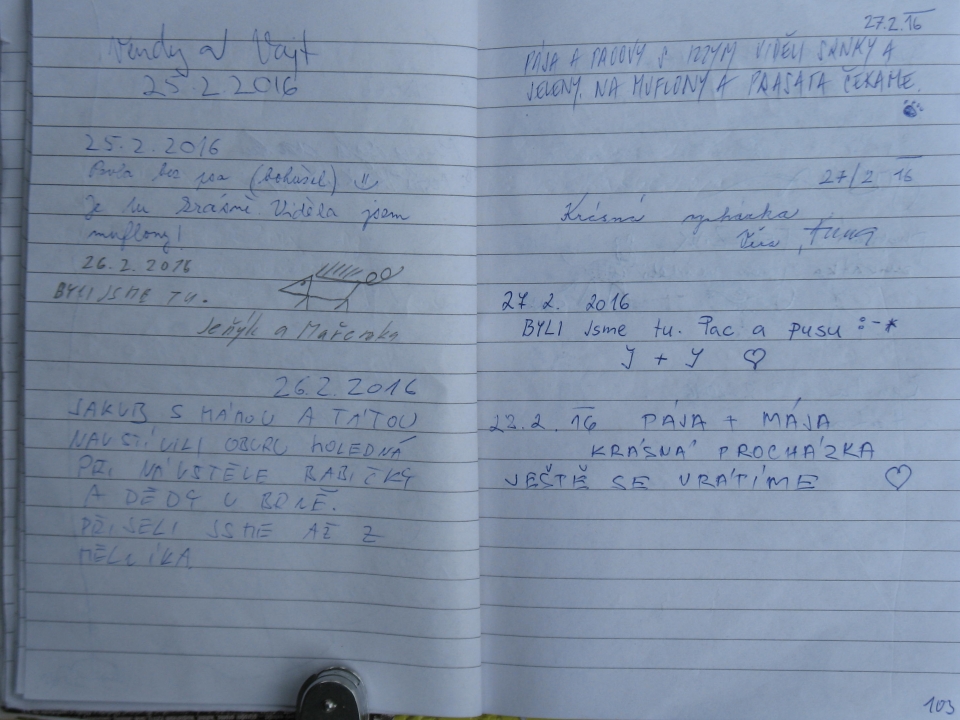 Vendy a Vojt
25.2.2016
25.2.2016
Byla bez psa (bohužel)
Je tu krásně. Viděla jsem
muflony!
26.2.2016
BYLI JSME TU.
Jeňýk a Mařenka
26.2.2016
JAKUB S MÁMOU A TÁTOU
NAVŠTÍVILI OBORU HOLEDNÁ
PŘI NÁVŠTĚVĚ BABIČKY
A DĚDY V BRNĚ.
PŘIJELI JSME AŽ Z
MĚLNÍKA
27.2.16
PÁJA A S VIDĚLI SRNKY A
JELENY. NA MUFLONY A PRASATA ČEKÁME.
27/2 16
Krásná
27 2. 2016
BYLI jsme tu. Pac a pusu :-*
J + J ♡
28.2.16 PÁJA + MÁJA
KRÁSNÁ PROCHÁZKA
JEŠTĚ SE VRÁTÍME ♡
103